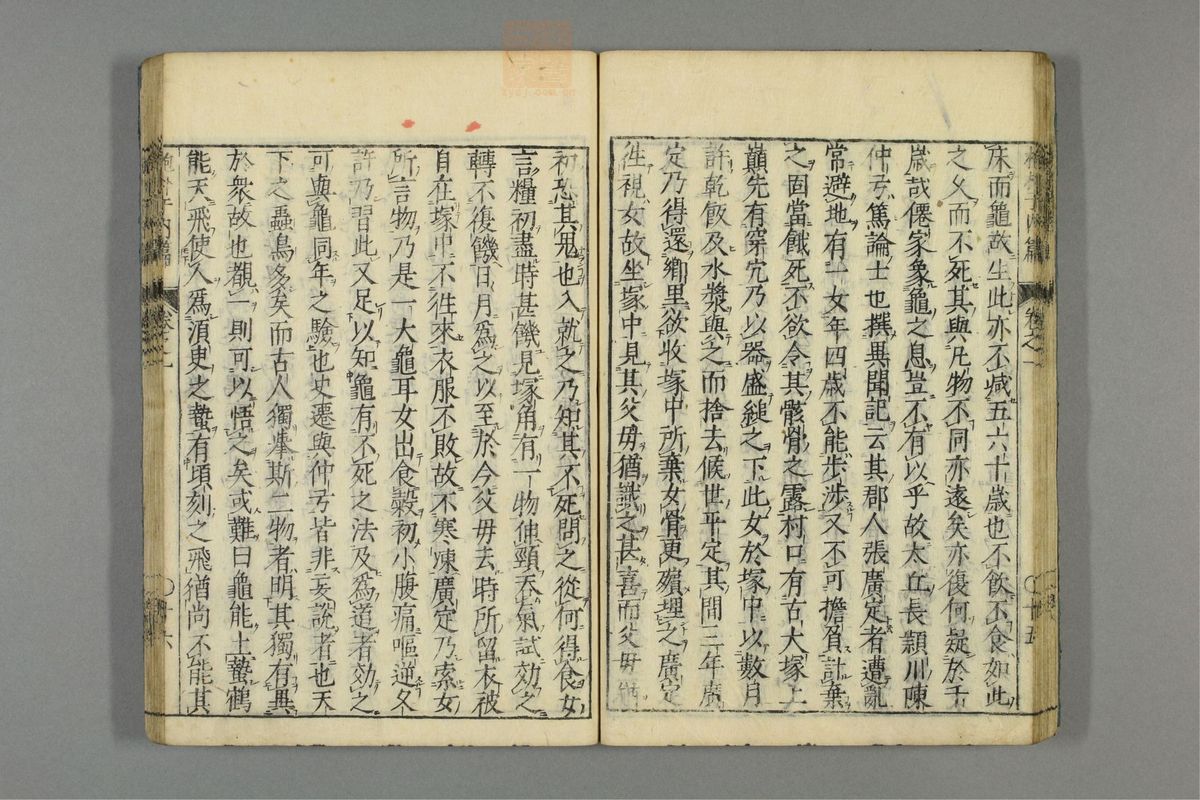 牀而龜故生此亦不減五六十歲也不飲不食如此
之久而不死其與凡物不同亦遠矣亦復何疑於千
歲哉僊家象龜之息豈不有以乎故太丘長潁川陳
仲弓篤論士也撰異聞記云其郡人張廣定者遭亂
常避地有一女年四歲不能步涉又不可擔負計棄
之固當餓死不欲令其骸骨之露村口有古大塚上
巔先有穿穴乃以器盛縋之下此女於塚中以數月
許乾飯及水漿與之而捨去候世平定其間三年廣
定乃得還鄉里欲收塚中所棄女骨更殯埋之廣定
徃視女故坐塚中見其父毋猶識之甚喜而父毋猶
抱朴子內篇
卷之一
十五
初恐其鬼也入就之乃知其不死問之從何得食女
言糧初盡時甚饑見塚角有一物伸頸吞氣試効之
轉不復饑日月爲之以至於今父毋去時所留衣被
自在塚中不徃來衣服不敗故不寒凍廣定乃索女
所言物乃是一大龜耳女出食穀初小腹痛嘔逆久
許乃習此又足以知龜有不死之法及爲道者効之
可與龜同年之驗也史遷與仲弓皆非妄說者也天
下之蟲鳥多矣而古人獨舉斯二物者明其獨有異
於衆故也覩一則可以悟之矣或難曰龜能土蟄鶴
能天飛使人爲須臾之蟄有頃刻之飛猶尚不能其